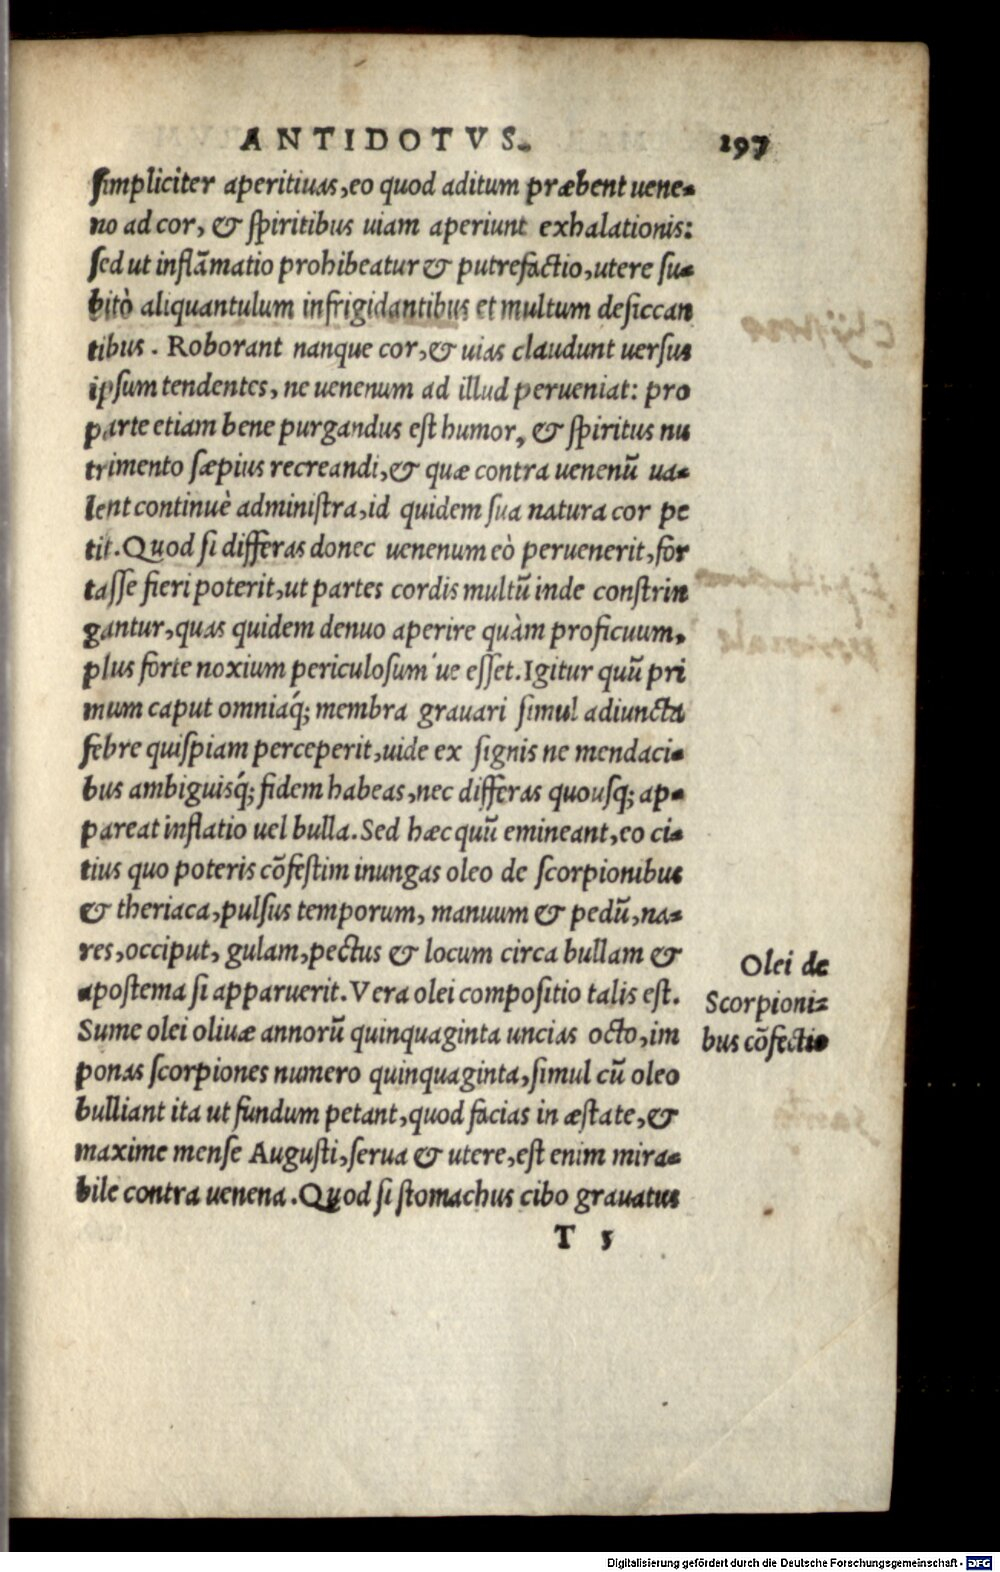 ANTIDOTVS. 197
ſimpliciter aperitiuas, eo quod aditum præbent uene-
no ad cor, & ſpiritibus uiam aperiunt exhalationis:
ſed ut inflãmatio prohibeatur & putrefactio, utere ſu-
bitò aliquantulum infrigidantibus et multum deſiccan
tibus. Roborant nanque cor, & uias claudunt uerſus
ipſum tendentes, ne uenenum ad illud perueniat: pro
parte etiam bene purgandus eſt humor, & ſpiritus nu
trimento ſæpius recreandi, & quæ contra uenenũ ua-
lent continuè adminiſtra, id quidem ſua natura cor pe
tit. Quod ſi differas donec uenenum eò peruenerit, for
taſſe fieri poterit, ut partes cordis multũ inde conſtrin
gantur, quas quidem denuo aperire quàm proficuum,
plus forte noxium periculoſum´ue eſſet. Igitur quũ pri
mum caput omniáq; membra grauari ſimul adiuncta
febre quiſpiam perceperit, uide ex ſignis ne mendaci-
bus ambiguisq́; fidem habeas, nec differas quouſq; ap-
pareat inflatio uel bulla. Sed hæc quũ emineant, eo ci-
tius quo poteris cõfeſtim inungas oleo de ſcorpionibus
& theriaca, pulſus temporum, manuum & pedũ, na-
res, occiput, gulam, pectus & locum circa bullam &
apostema ſi apparuerit. Vera olei compoſitio talis est.
Sume olei oliuæ annorũ quinquaginta uncias octo, im
ponas ſcorpiones numero quinquaginta, ſimul cũ oleo
bulliant ita ut fundum petant, quod facias in æſtate, &
maxime menſe Auguſti, ſerua & utere, eſt enim mira-
bile contra uenena. Quod ſi ſtomachus cibo grauatus
T 5
Olei de
Scorpioni-
bus cõfectio
Digitalisierung gefördert durch die Deutsche Forschungsgemeinschaft - DFG